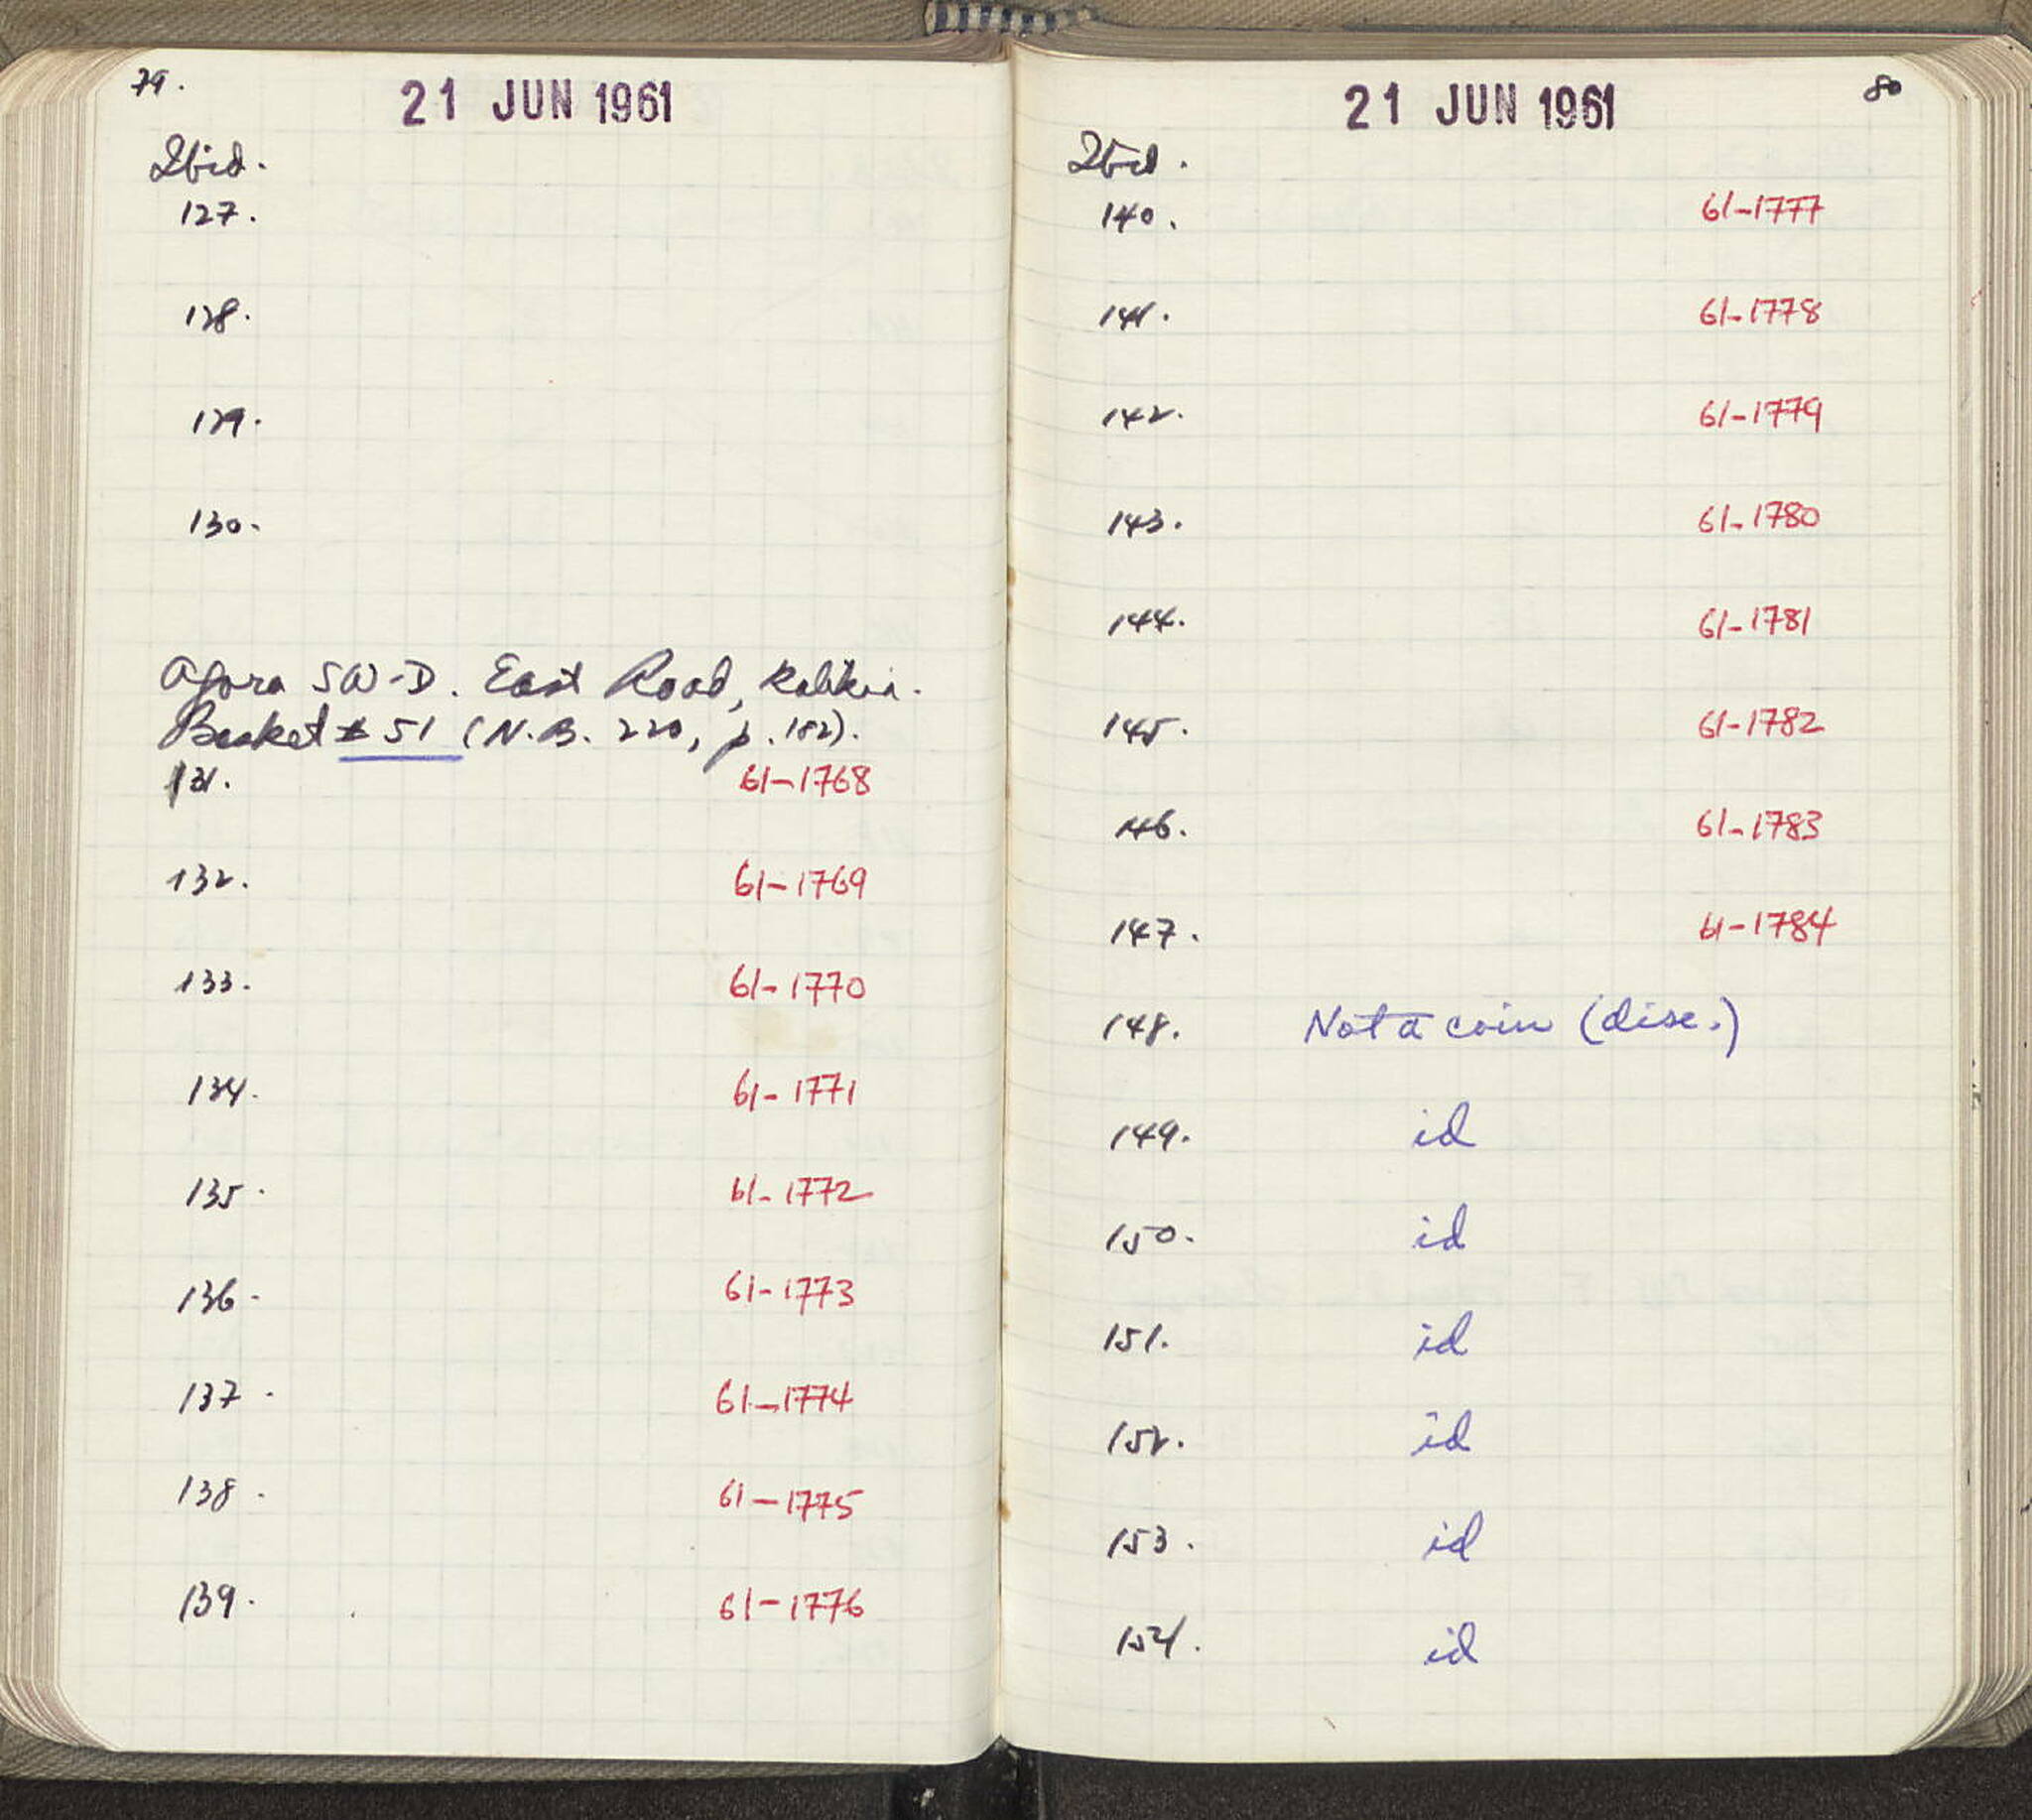 79.
21 JUN 1961
Ibid.
127.
128.
129.
130.
Agora SW-D. East Road,
Basket # 51 (N.B. 220, p. 182).
131. 61-1768
132. 61-1769
133. 61-1770
134. 61-1771
135. 61-1772
136. 61-1773
137. 61-1774
138. 61-1775
139. 61-1776
21 JUN 1961
80
Ibid.
140. 61-1777
141. 61-1778
142. 61-1779
143. 61-1780
144. 61-1781
145. 61-1782
146. 61-1783
147. 61-1784
148. Not a coin (disc.)
149. id
150. id
151. id
152. id
153. id
154. id